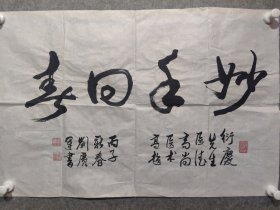 妙手回春
衍慶
先生
医德
高尚
医术
高超
丙子
新春
劉广
军书